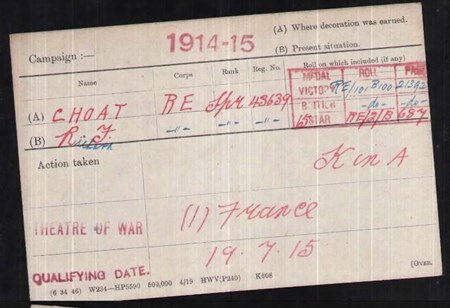 (A) Where decoration was earned.
Campaign :— 1914-15
(B) Present situation.
Name Corps. Rank Reg. No. Roll on which included (if any)
MEDAL ROLL PAGE
(A) CHOAT RE Spr 43639 VICTORY RE/101 B100
B.T.H. -do- -do-
(B) R. F. -"- -"- -"- 15 STAR RE/2/B 687
Action taken
K in A
THEATRE OF WAR (1) France
19.7.15
QUALIFYING DATE.
(6 34 46) W234—HP5590 500,000 4/19 HWV(P240) K608 (Over.